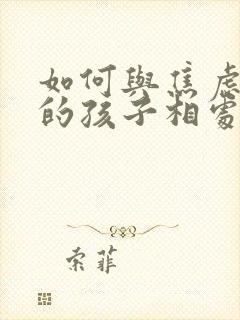 如何與焦慮
的孩子相處
索菲